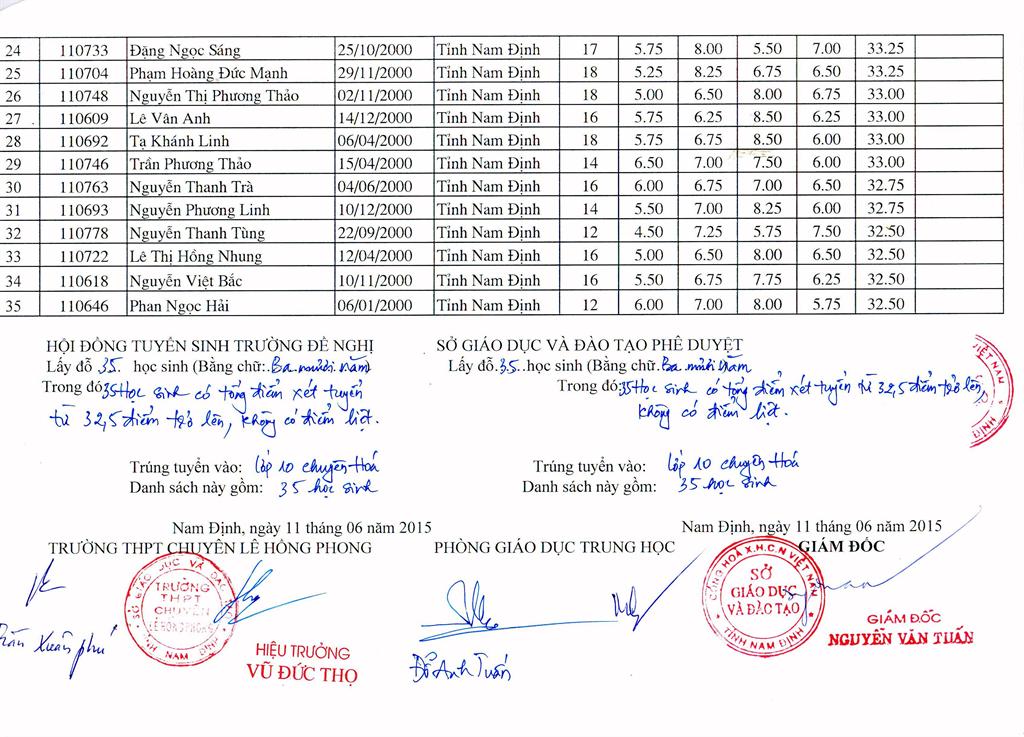 24 110733 Đặng Ngọc Sáng 25/10/2000 Tỉnh Nam Định 17 5.75 8.00 5.50 7.00 33.25
25 110704 Phạm Hoàng Đức Mạnh 29/11/2000 Tỉnh Nam Định 18 5.25 8.25 6.75 6.50 33.25
26 110748 Nguyễn Thị Phương Thảo 02/11/2000 Tỉnh Nam Định 18 5.00 6.50 8.00 6.75 33.00
27 110609 Lê Vân Anh 14/12/2000 Tỉnh Nam Định 16 5.75 6.25 8.50 6.25 33.00
28 110692 Tạ Khánh Linh 06/04/2000 Tỉnh Nam Định 18 5.75 6.75 8.50 6.00 33.00
29 110746 Trần Phương Thảo 15/04/2000 Tỉnh Nam Định 14 6.50 7.00 7.50 6.00 33.00
30 110763 Nguyễn Thanh Trà 04/06/2000 Tỉnh Nam Định 16 6.00 6.75 7.00 6.50 32.75
31 110693 Nguyễn Phương Linh 10/12/2000 Tỉnh Nam Định 14 5.50 7.00 8.25 6.00 32.75
32 110778 Nguyễn Thanh Tùng 22/09/2000 Tỉnh Nam Định 12 4.50 7.25 5.75 7.50 32.50
33 110722 Lê Thị Hồng Nhung 12/04/2000 Tỉnh Nam Định 16 5.00 6.50 8.00 6.50 32.50
34 110618 Nguyễn Việt Bắc 10/11/2000 Tỉnh Nam Định 16 5.50 6.75 7.75 6.25 32.50
35 110646 Phan Ngọc Hải 06/01/2000 Tỉnh Nam Định 12 6.00 7.00 8.00 5.75 32.50
HỘI ĐỒNG TUYỂN SINH TRƯỜNG ĐỀ NGHỊ
Lấy đỗ .35. học sinh (Bằng chữ:.Ba mười năm)
Trong đó 35 Học sinh có tổng điểm xét tuyển
từ 32,5 điểm trở lên, không có điểm liệt.
Trúng tuyển vào: lớp 10 chuyên Hoá
Danh sách này gồm: 35 học sinh
Nam Định, ngày 11 tháng 06 năm 2015
TRƯỜNG THPT CHUYÊN LÊ HỒNG PHONG
SỞ GIÁO DỤC VÀ ĐÀO TẠO PHÊ DUYỆT
Lấy đỗ.35..học sinh (Bằng chữ.Ba mười năm
Trong đó:35 Học sinh có tổng điểm xét tuyển từ 32,5 điểm trở lên,
không có điểm liệt.
Trúng tuyển vào: lớp 10 chuyên Hoá
Danh sách này gồm: 35 học sinh
Nam Định, ngày 11 tháng 06 năm 2015
PHÒNG GIÁO DỤC TRUNG HỌC
GIÁM ĐỐC
VIỆT NAM
ĐỊNH
SỞ GIÁO DỤC VÀ ĐÀO
TRƯỜNG
THPT
CHUYÊN
LÊ HỒNG PHONG
NAM ĐỊNH
Trần Xuân Phú
HIỆU TRƯỞNG
VŨ ĐỨC THỌ
Đỗ Anh Tuấn
CỘNG HOÀ X.H.C.N VIỆT NAM
SỞ
GIÁO DỤC
VÀ ĐÀO TẠO
TỈNH NAM ĐỊNH
GIÁM ĐỐC
NGUYỄN VĂN TUẤN